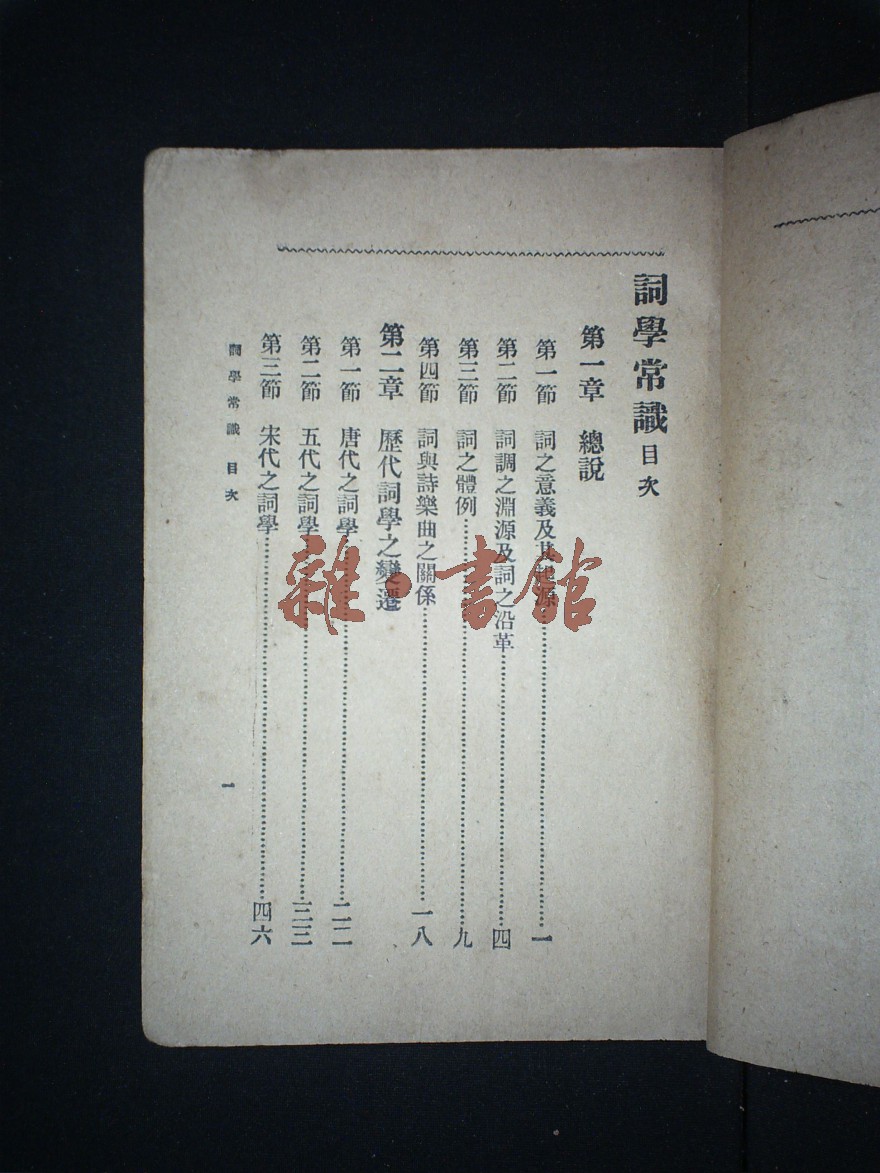 詞學常識目次
第一章 總說
第一節 詞之意義及其起源……一
第二節 詞調之淵源及詞之沿革……四
第三節 詞之體例……九
第四節 詞與詩樂曲之關係……一八
第二章 歷代詞學之變遷
第一節 唐代之詞學……二二
第二節 五代之詞學……三三
第三節 宋代之詞學……四六
詞學常識 目次 一
雜·書館